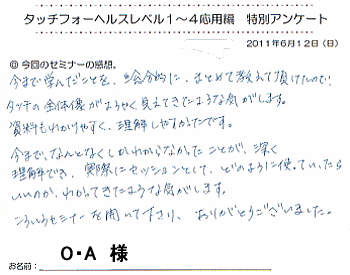 タッチフォーヘルスレベル1〜4応用編 特別アンケート
2011年6月12日(日)
◎ 今回のセミナーの感想。
今まで学んだことを、総合的に、まとめて教えて頂けたので
タッチの全体像がようやく見えてきたような気がします。
資料もわかりやすく、理解しやすかったです。
今まで、なんとなくしかわからなかったことが、深く
理解でき、実際にセッションとして、どのように使っていったら
いいのか、わかってきたような気がします。
こういうセミナーを開いて下さり、ありがとうございました。
お名前: O・A 様